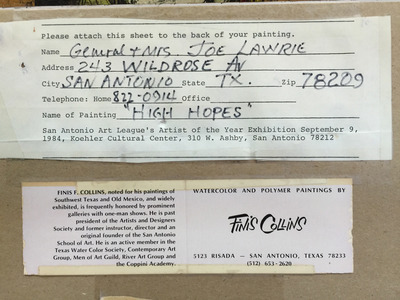 Please attach this sheet to the back of your painting.
Name General + Mrs. JOE LAWRIE
Address 243 WILDROSE AV
City SAN ANTONIO State TX. Zip 78209
Telephone: Home 822-0914 Office
Name of Painting "HIGH HOPES"
San Antonio Art League's Artist of the Year Exhibition September 9,
1984, Koehler Cultural Center, 310 W. Ashby, San Antonio 78212
FINIS F. COLLINS, noted for his paintings of
Southwest Texas and Old Mexico, and widely
exhibited, is frequently honored by prominent
galleries with one-man shows. He is past
president of the Artists and Designers
Society and former instructor, director and an
original founder of the San Antonio
School of Art. He is an active member in the
Texas Water Color Society, Contemporary Art
Group, Men of Art Guild, River Art Group and
the Coppini Academy.
WATERCOLOR AND POLYMER PAINTINGS BY
FINIS COLLINS
5123 RISADA — SAN ANTONIO, TEXAS 78233
(512) 653-2620